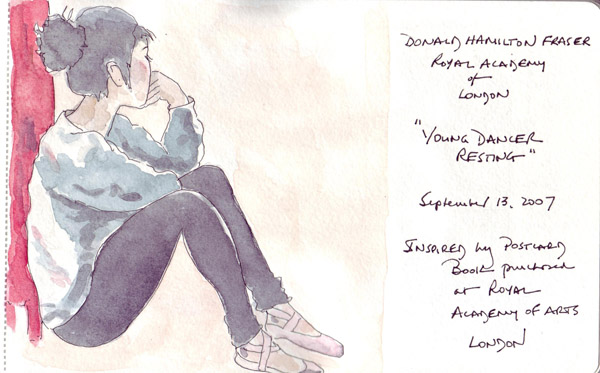 DONALD HAMILTON FRASER
ROYAL ACADEMY
of
LONDON
"YOUNG DANCER
RESTING"
September 13, 2007
INSPIRED by POSTCARD
BOOK purchased
at ROYAL
ACADEMY OF ARTS
LONDON